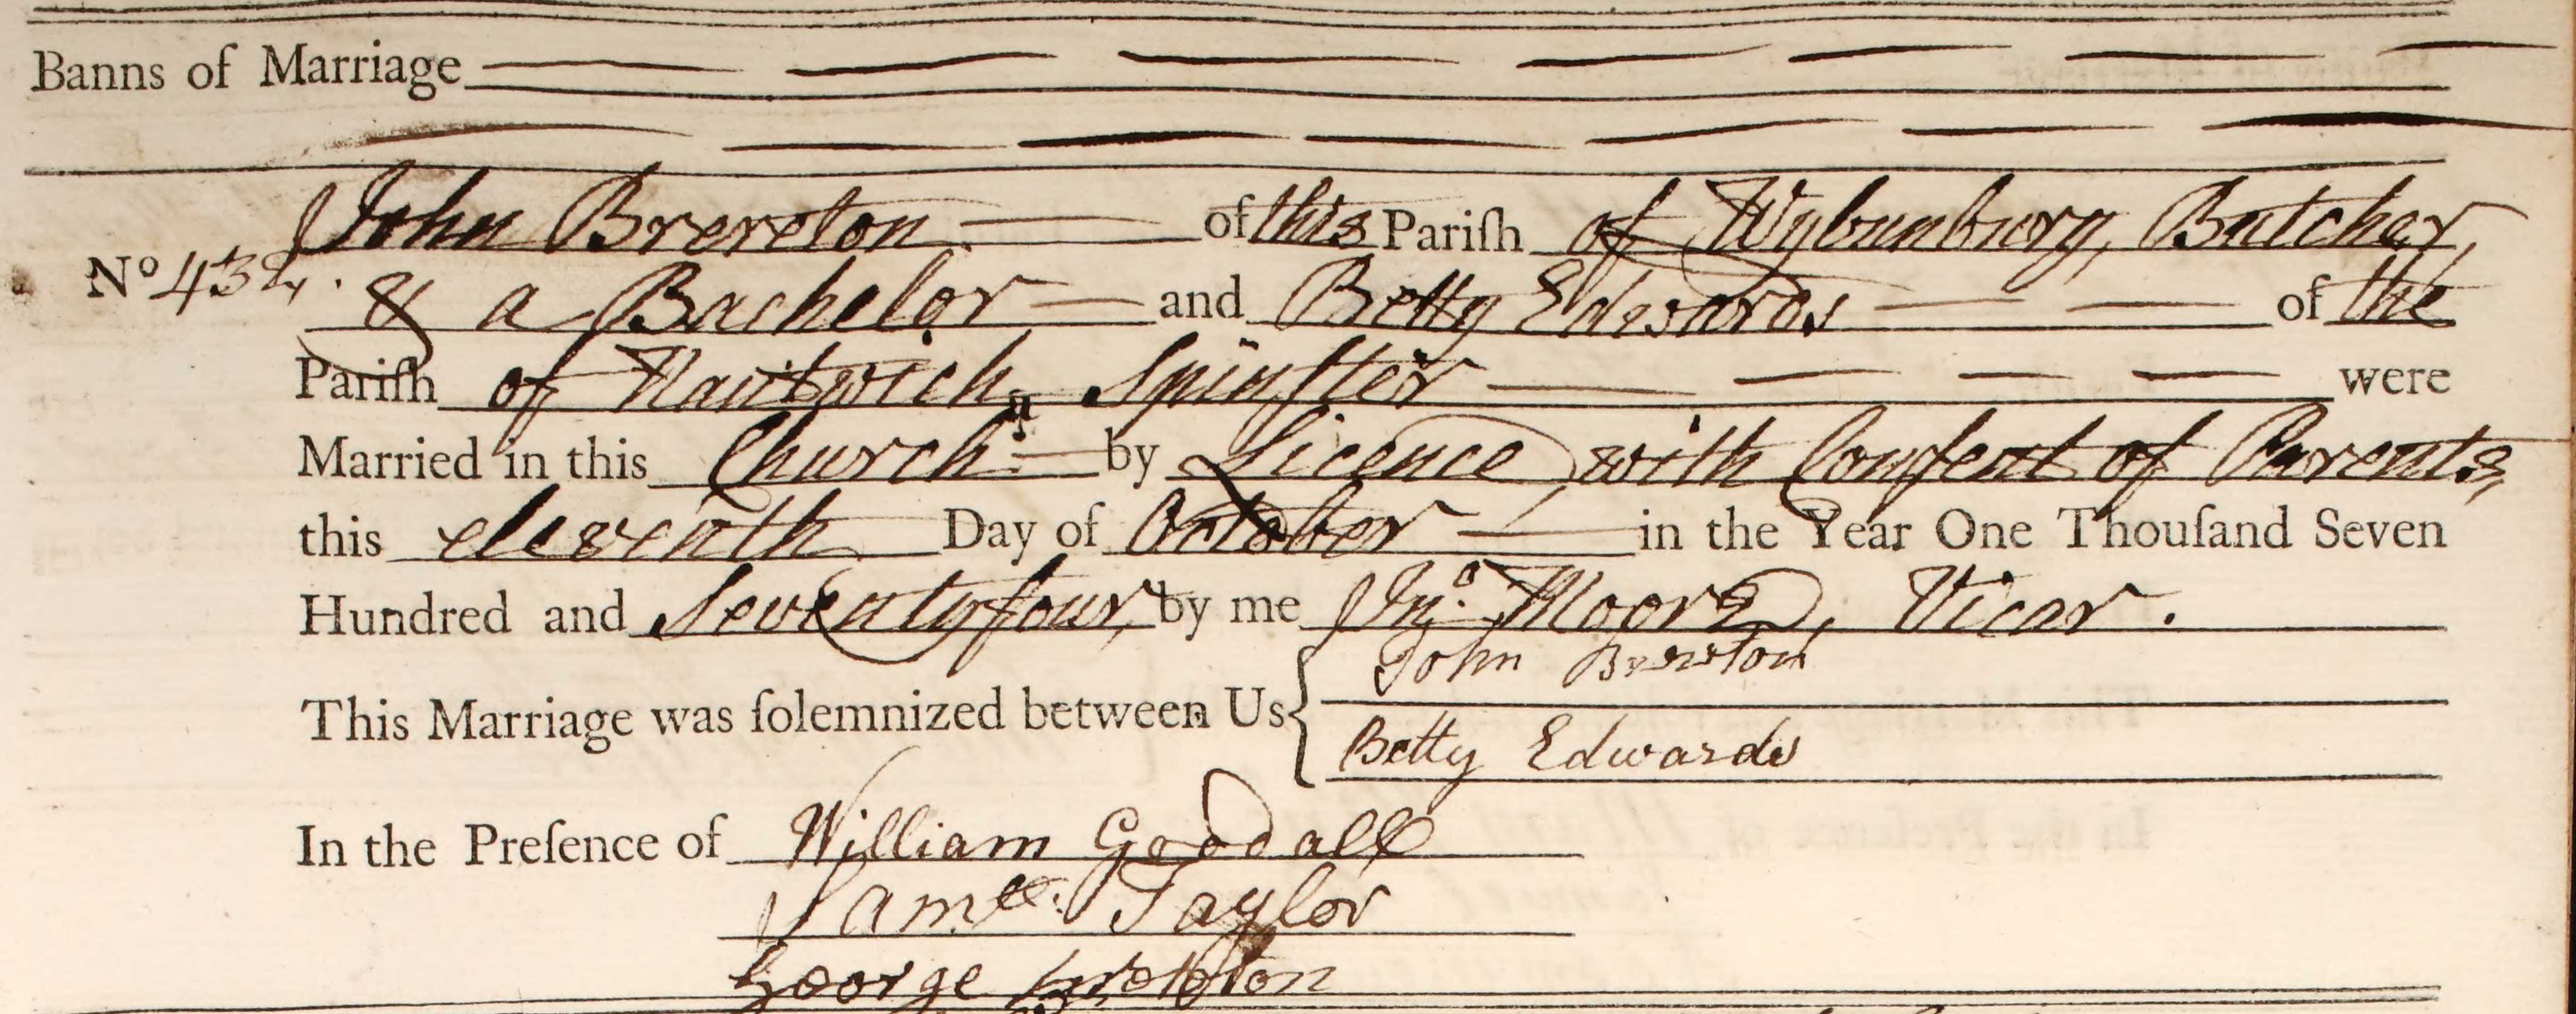 Banns of Marriage
John Brereton of this Pariſh of Wybunbury, Butcher,
No 432. & a Bachelor and Betty Edwards of the
Pariſh of Nantwich, Spinſter were
Married in this Church by Licence with Conſent of Parents,
this eleventh Day of October in the Year One Thouſand Seven
Hundred and Seventyfour, by me Jn.o Moore, Vicar.
This Marriage was ſolemnized between Us { John Brereton
Betty Edwards
In the Preſence of William Goodall
Sam.ll Taylor
George